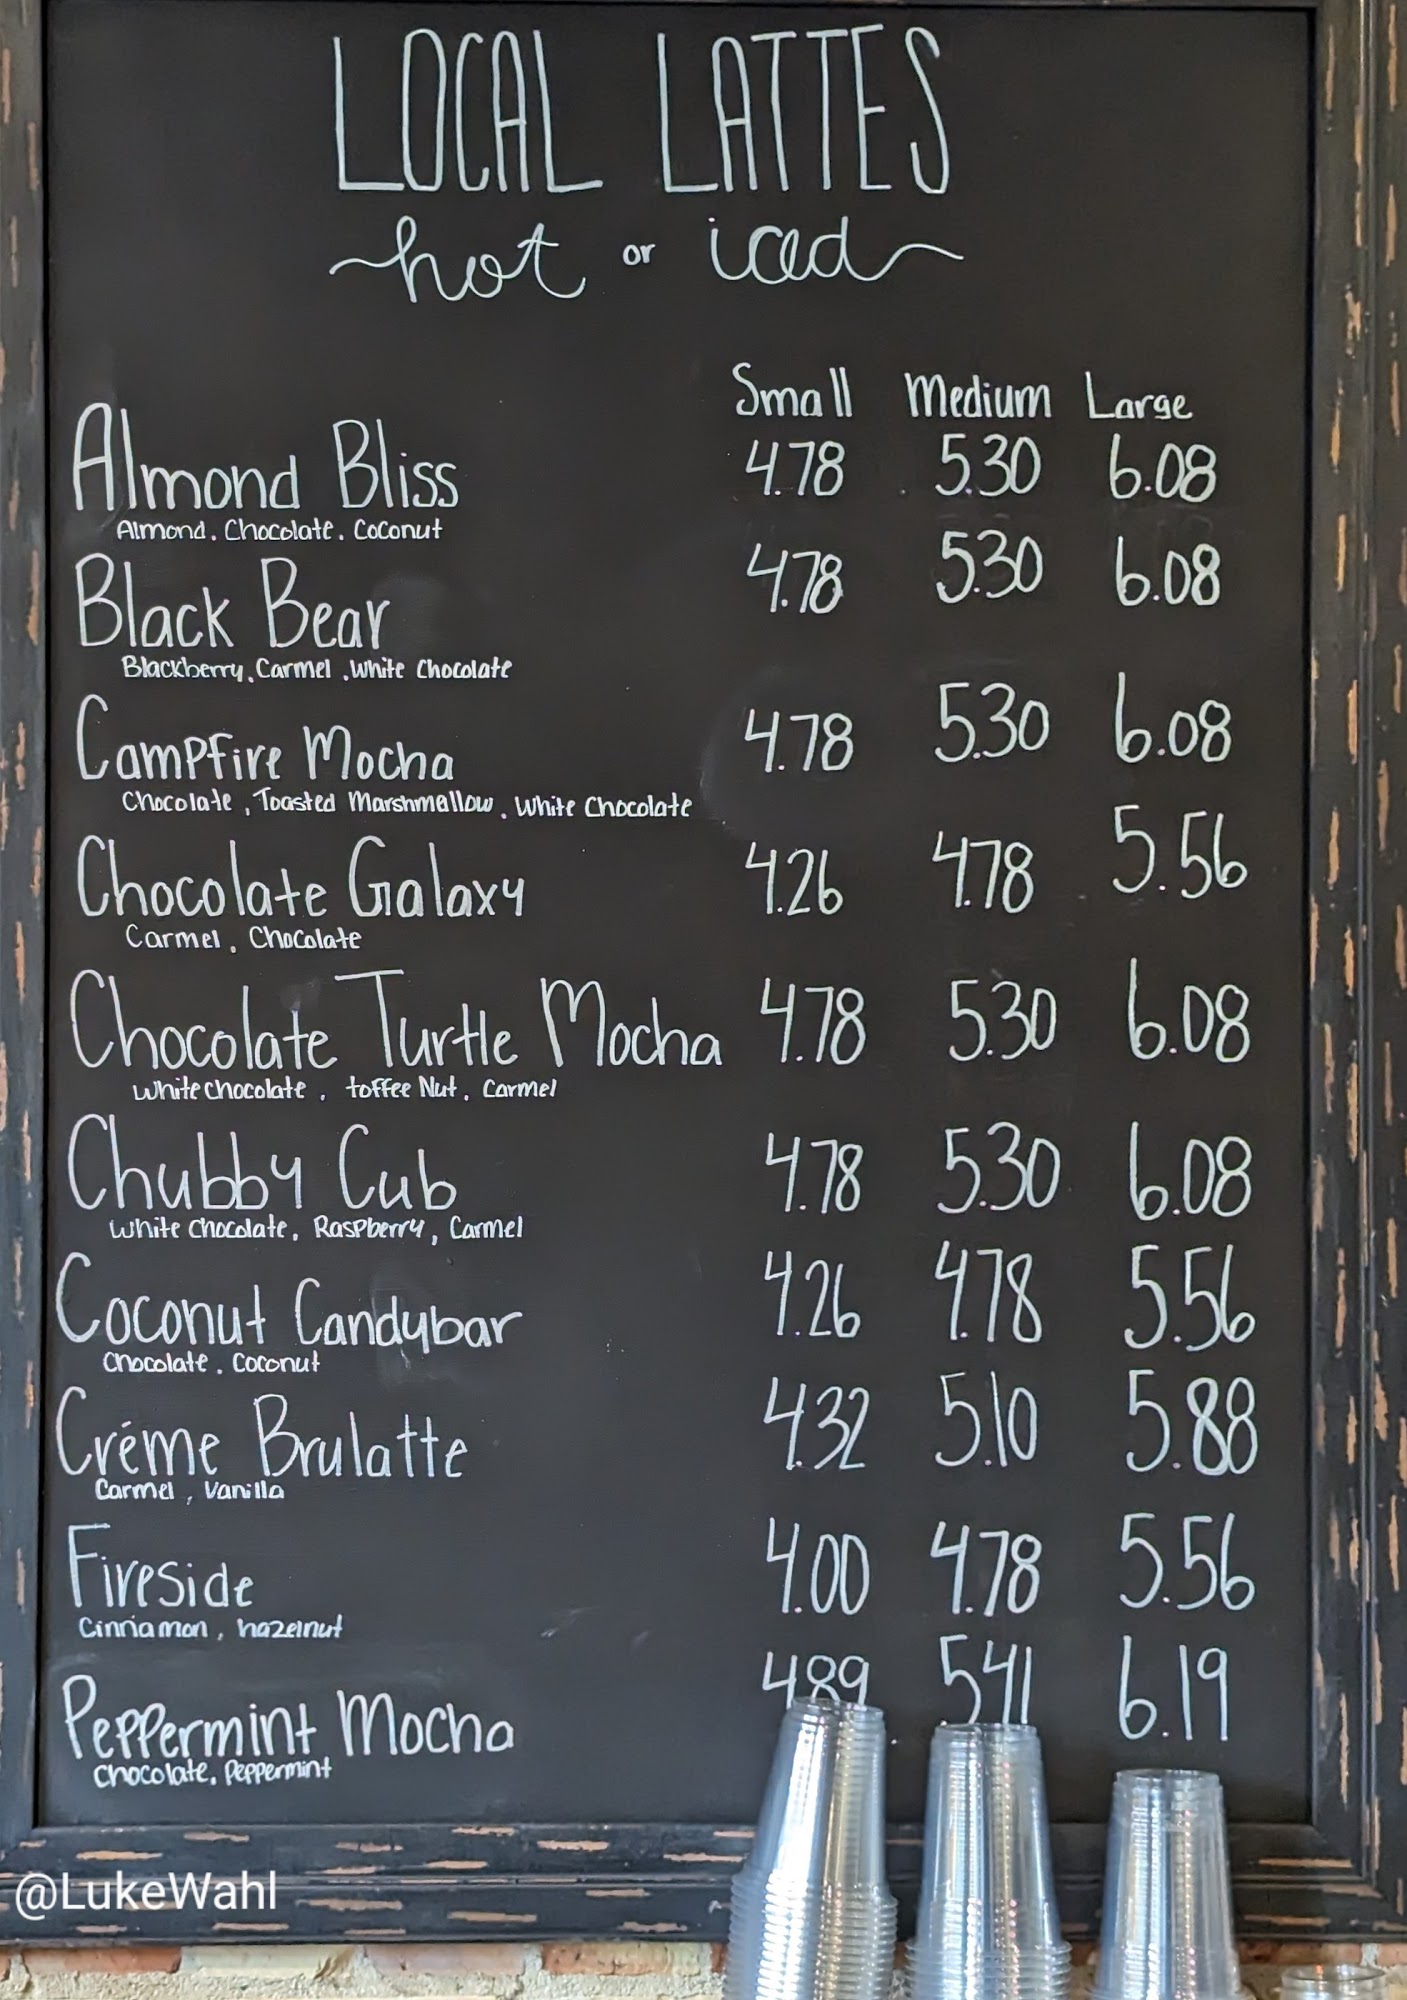 LOCAL LATTES
hot or iced
Small Medium Large
Almond Bliss 4.78 5.30 6.08
Almond. Chocolate. Coconut
Black Bear 4.78 5.30 6.08
Blackberry. Carmel. White Chocolate
Campfire Mocha 4.78 5.30 6.08
Chocolate, Toasted Marshmallow. White Chocolate
Chocolate Galaxy 4.26 4.78 5.56
Carmel. Chocolate
Chocolate Turtle Mocha 4.78 5.30 6.08
White Chocolate. toffee Nut. Carmel
Chubby Cub 4.78 5.30 6.08
White Chocolate, Raspberry, Carmel
Coconut Candybar 4.26 4.78 5.56
Chocolate. Coconut
Créme Brulatte 4.32 5.10 5.88
Carmel, Vanilla
Fireside 4.00 4.78 5.56
Cinnamon, hazelnut
Peppermint Mocha 4.89 5.41 6.19
Chocolate. Peppermint
@LukeWahl